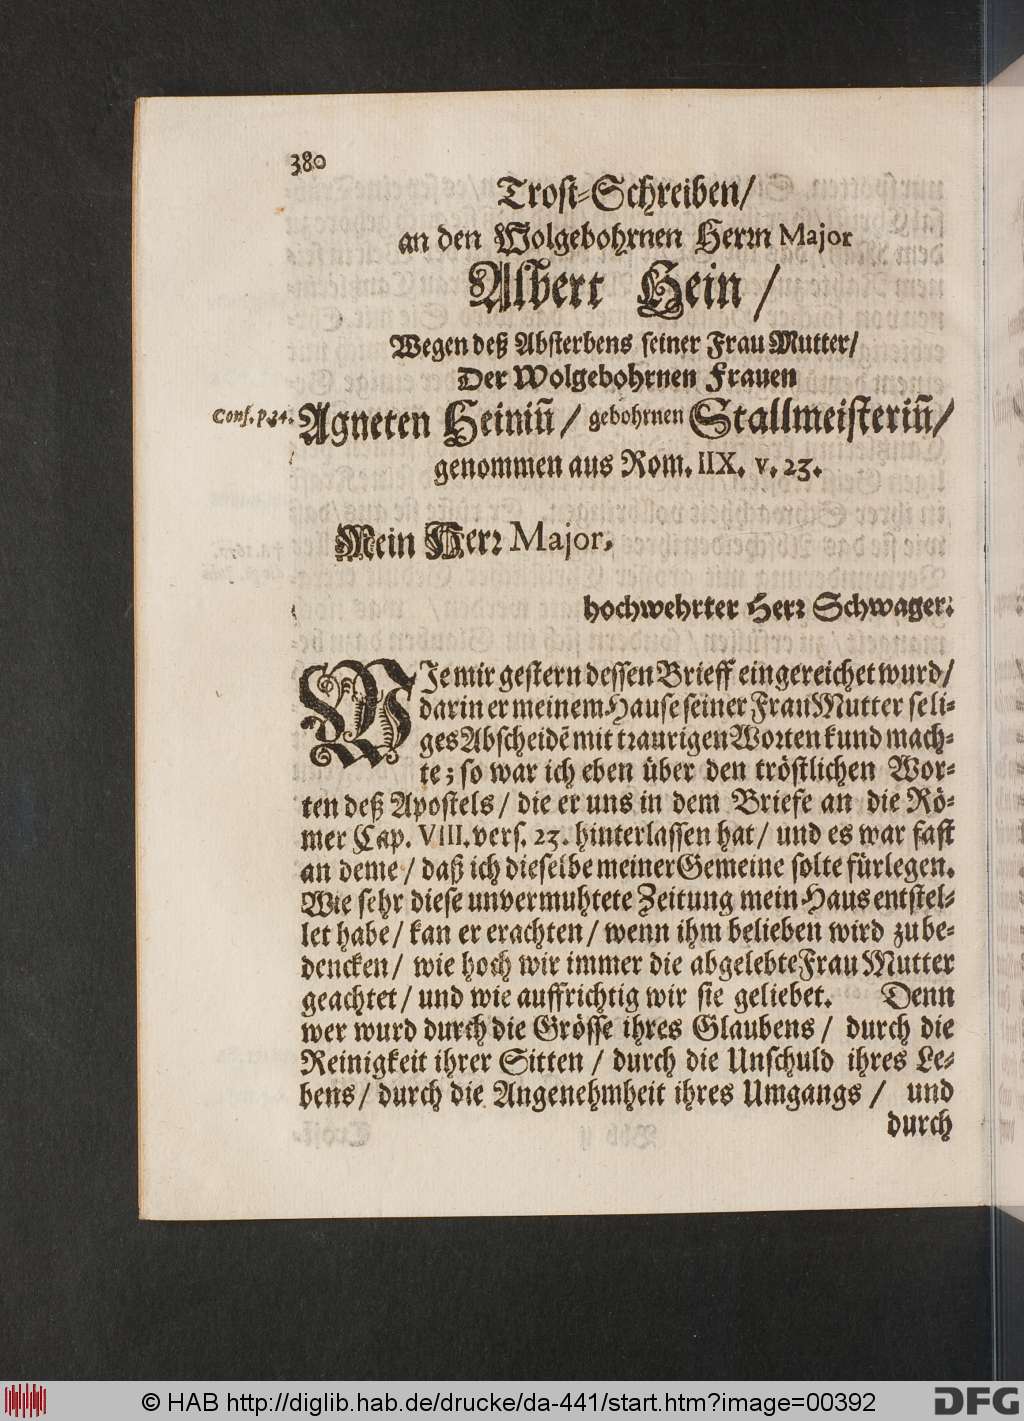 380
Trost-Schreiben/
an den Wolgebohrnen Herrn Major
Albert Hein /
Wegen deß Absterbens seiner Frau Mutter/
Der Wolgebohrnen Frauen
Conf. p. 24. Agneten Heiniñ / gebohrnen Stallmeisteriñ/
genommen aus Rom. IIX. v. 23.
Mein Herr Major,
hochwehrter Herr Schwager:
WJe mir gestern dessen Brieff eingereichet wurd/
darin er meinem Hause seiner Frau Mutter seli-
ges Abscheidē mit traurigen Worten kund mach-
te; so war ich eben über den tröstlichen Wor-
ten deß Apostels / die er uns in dem Briefe an die Rö-
mer Cap. VIII. vers. 23. hinterlassen hat / und es war fast
an deme / daß ich dieselbe meiner Gemeine solte fürlegen.
Wie sehr diese unvermuhtete Zeitung mein Haus entstel-
let habe / kan er erachten / wenn ihm belieben wird zu be-
dencken / wie hoch wir immer die abgelebte Frau Mutter
geachtet / und wie auffrichtig wir sie geliebet. Denn
wer wurd durch die Grösse ihres Glaubens / durch die
Reinigkeit ihrer Sitten / durch die Unschuld ihres Le-
bens / durch die Angenehmheit ihres Umgangs / und
durch
© HAB http://diglib.hab.de/drucke/da-441/start.htm?image=00392
DFG